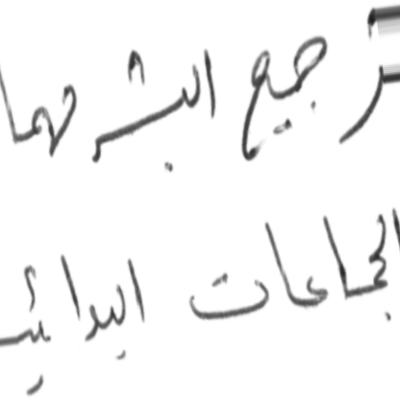 جميع البشر هما
الجماعات البدائية